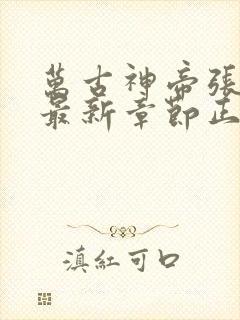 萬古神帝張
最新章節正
滇紅可口